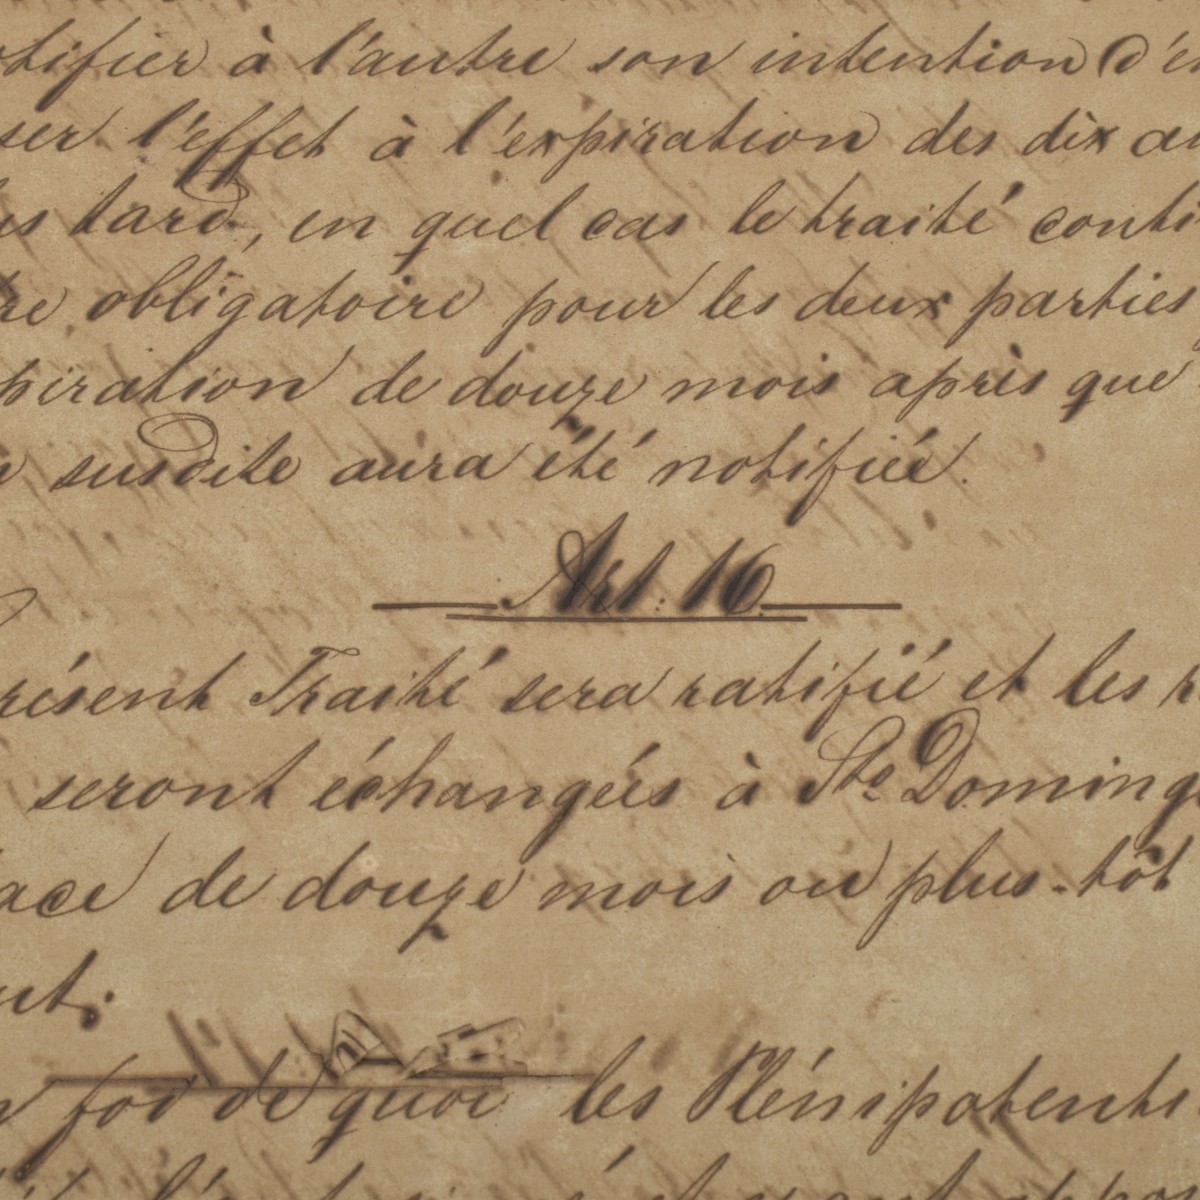 otifier à l'autre son intention d'en
ser l'effet à l'expiration des dix an
us tard, en quel cas le traité conti
re obligatoire pour les deux parties
piration de douze mois après que
susdite aura été notifiée.
Art. 16
résent Traité sera ratifié et les r
seront échangées à Sto Doming
ace de douze mois ou plus-tôt
ut.
n foi de quoi les Plénipotenti